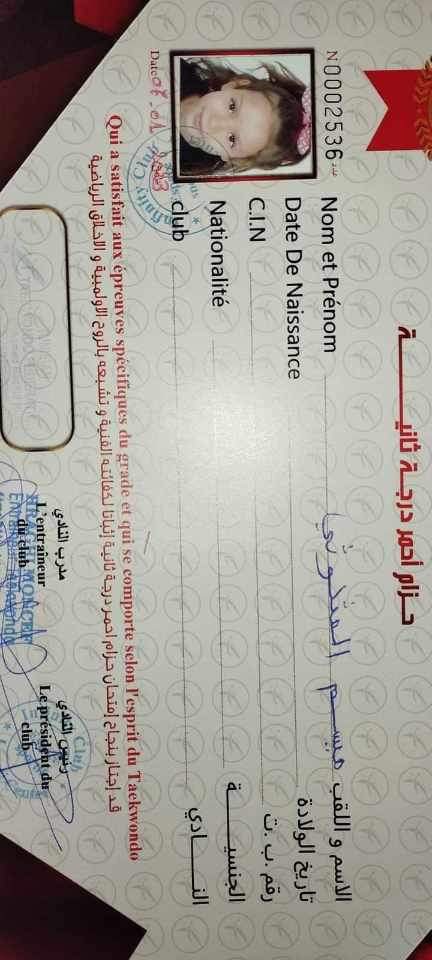 حزام أحمر درجة ثانيـــــة
N 0002536 عدد
Nom et Prénom ميسم المتلوثي الاسم و اللقب
Date De Naissance تاريخ الولادة
C.I.N رقم ب. ت
Nationalité الجنسيـــة
club النـــادي
Date
Qui a satisfait aux épreuves spécifiques du grade et qui se comporte selon l'esprit du Taekwondo
قد إجتاز بنجاح إمتحان حزام احمر درجة ثانية إثباتا لكفائته الفنية و تشبعه بالروح الاولمبية و الاخلاق الرياضية
مدرب النادي
L'entraîneur
du club
رئيس النادي
Le président du
club